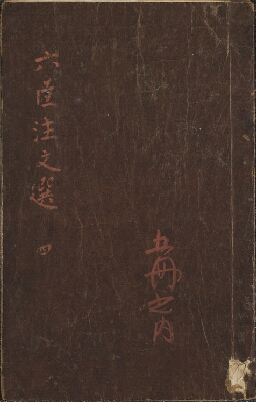 六臣注文選 四
五冊之内